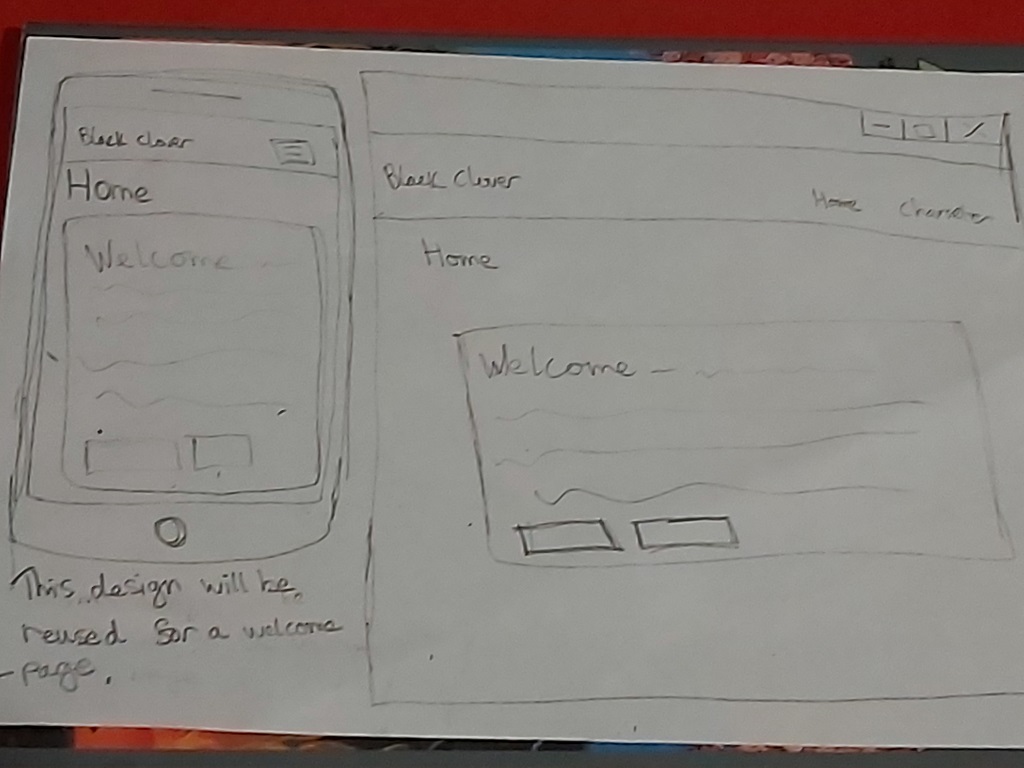 Black Clover
Home
Welcome
This design will be
reused for a welcome
page.
Black Clover
Home Character
Home
Welcome